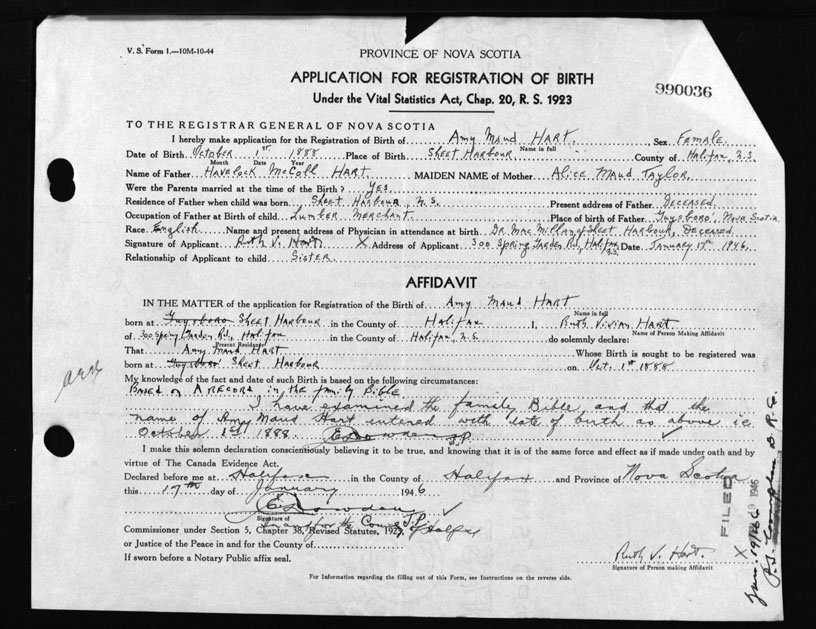 V. S. Form 1.—10M-10-44
PROVINCE OF NOVA SCOTIA
APPLICATION FOR REGISTRATION OF BIRTH
990036
Under the Vital Statistics Act, Chap. 20, R. S. 1923
TO THE REGISTRAR GENERAL OF NOVA SCOTIA
I hereby make application for the Registration of Birth of Amy Maud HART. Sex FEMALE.
Name in full
Date of Birth October 1st 1888 Place of Birth SHEET HARBOUR County of Halifax, N.S.
Month Date Year
Name of Father HAVELOCK McColl HART. MAIDEN NAME of Mother ALICE MAUD TAYLOR.
Were the Parents married at the time of the Birth? YES.
Residence of Father when child was born Sheet HARBOUR, N.S. Present address of Father DECEASED.
Occupation of Father at Birth of child Lumber Merchant. Place of birth of Father Guysboro, Nova Scotia
Race English Name and present address of Physician in attendance at birth Dr. MacMillan of Sheet Harbour, Deceased.
Signature of Applicant Ruth V. Hart X Address of Applicant 300 Spring Garden Rd, Halifax, N.S. Date January 17th 1946.
Relationship of Applicant to child Sister.
AFFIDAVIT
IN THE MATTER of the application for Registration of the Birth of Amy Maud HART
Name in full
born at Guysboro Sheet Harbour in the County of Halifax I, Ruth Vivian Hart.
of 300 Spring Garden Rd, Halifax in the County of Halifax, N.S. do solemnly declare:
Present Residence Name of Person Making Affidavit
That Amy Maud HART Whose Birth is sought to be registered was
born at Guysboro Sheet Harbour on Oct. 1st 1888
My knowledge of the fact and date of such Birth is based on the following circumstances:
BASED on A RECORD in the family Bible
I have examined the family Bible and that the
name of Amy Maud Hart entered with date of birth as above ie
October 1st 1888 J.P.
I make this solemn declaration conscientiously believing it to be true, and knowing that it is of the same force and effect as if made under oath and by
virtue of The Canada Evidence Act.
Declared before me at Halifax in the County of Halifax and Province of Nova Scotia
this 17th day of January 1946
Signature of
in and for the County of Halifax J.P.
Commissioner under Section 5, Chapter 38, Revised Statutes, 1923.
or Justice of the Peace in and for the County of
If sworn before a Notary Public affix seal.
Ruth V. Hart. X
Signature of Person making Affidavit
For Information regarding the filling out of this Form, see Instructions on the reverse side.
FILED